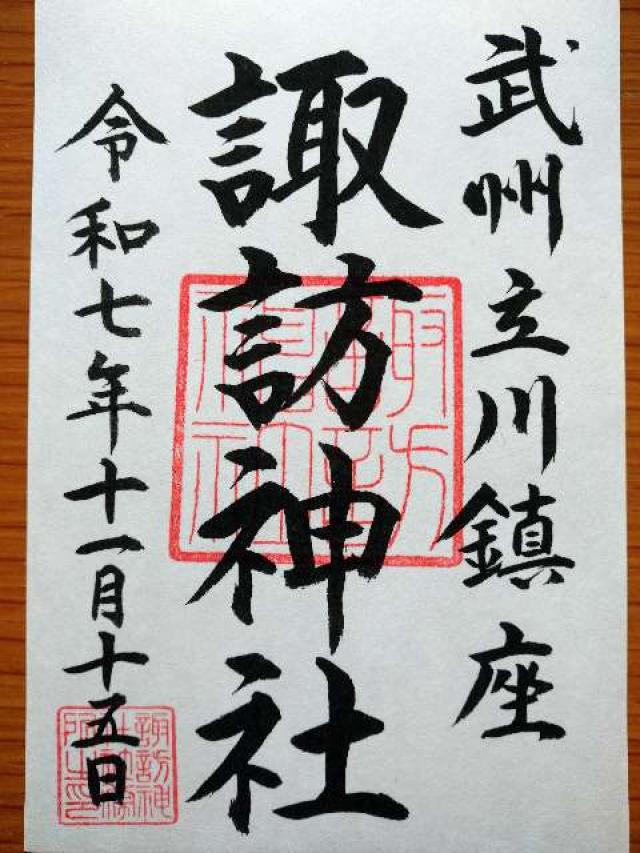 武州立川鎮座
諏訪神社
令和七年十一月十五日
諏訪神社